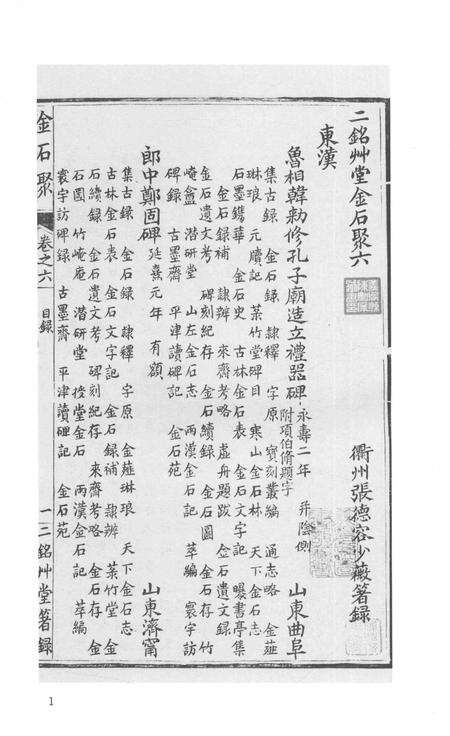 二銘艸堂金石聚六
衢州張德容少薇箸録
東漢
魯相韓勑修孔子廟造立禮器碑
永壽二年 并陰側
附項伯脩題字
山東曲阜
集古録 金石録 隸釋 字原 寶刻叢編 通志略 金薤
琳琅 元牘記 菉竹堂碑目 寒山金石林 天下金石志
石墨鐫華 金石史 古林金石表 金石文字記 曝書亭集
金石録補 隸辨 來齋考略 虚舟題跋 金石遺文録
金石遺文考 碑刻紀存 金石續録 金石圖 竹
崦盦 潜研堂 山左金石志 兩漢金石記 萃編 寰宇訪
碑録 古墨齋 平津讀碑記 金石苑
郎中鄭固碑 延熹元年 有額
山東濟甯
集古録 金石録 隸釋 字原 金薤琳琅 天下金石志
古林金石表 金石文字記 金石録補 隸辨 菉竹堂 金
石續録 金石遺文考 碑刻紀存 來齋考略 金石存 金
石圖 竹崦庵 潜研堂 授堂金石 兩漢金石記 萃編
寰宇訪碑録 古墨齋 平津讀碑記 金石苑
金石聚 卷之六 目録 一 二銘艸堂箸録
1